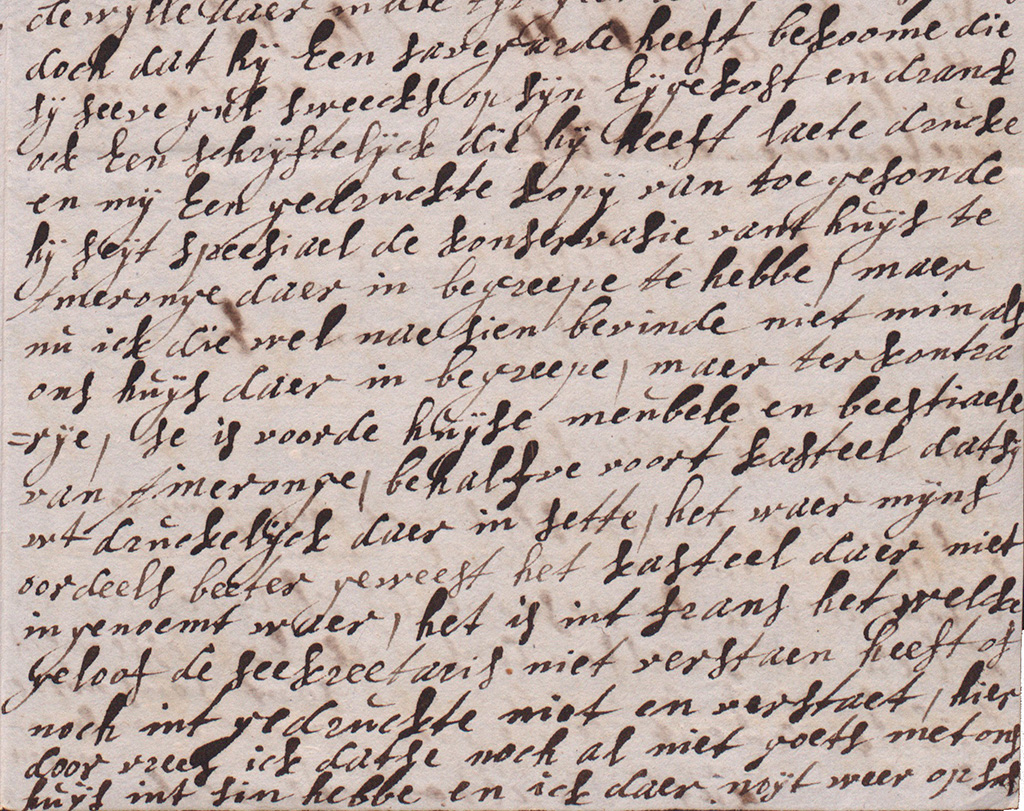 dewylle daer in die
doch dat hij Een savegarde heeft bekoome die
sij seeve gul sweecks op sijn Eijgekost en dranck
ock Een schrijftelijck die hij heeft laete drucke
en mij Een gedruckte kopij van toe gesonde
hij seijt speesiael de konservasie vant huijs te
Ameronge daer in begreepe te hebbe / maer
nu ick die wel nae sien bevinde niet min als
ons huijs daer in begreepe / maer ter kontra
=rije / se is voorde huijse meubele en beestiaele
van Ameronge / behalfve voort kasteel datsij
wt druckelijck daer in sette / het waer mijns
oordeels beeter geweest het kasteel daer niet
in genoemt waer / het is int frans het welcke
geloof de seekreetaris niet verstaen heeft of
noch int gedruckte niet en verstaet / hier
door vrees ick datse noch al niet goets met ons
huijs int sin hebbe en ick daer noijt weer op